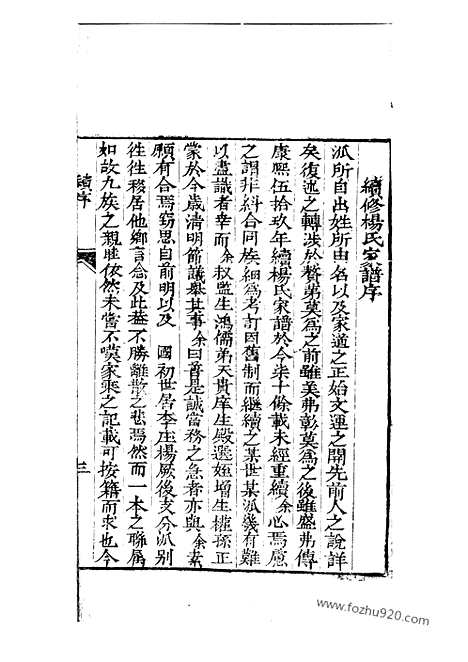 續修楊氏家譜序
派所自出姓所由名以及家道之正始文運之開先前人之說詳
矣復述之轉涉於贅第莫為之前雖美弗彰莫為之後雖盛弗傳
康熙伍拾玖年續楊氏家譜於今柒十餘載未經重續余心焉慮
之謂非糾合同族細為考訂因舊制而繼續之某世某派幾有難
以盡識者幸而余叔監生鴻儒弟天貴庠生殿選姪增生權孫正
蒙於今歲清明節議舉其事余曰善是誠當務之急者亦與余素
願有合焉竊思自前明以及 國初世居李庄楊厥後支分派別
徃徃移居他鄉言念及此葢不勝離散之悲焉然而一本之聯属
如故九族之親睦依然未嘗不嘆家乘之記載可按籍而求也今
續序
三
www.fozhu920.com